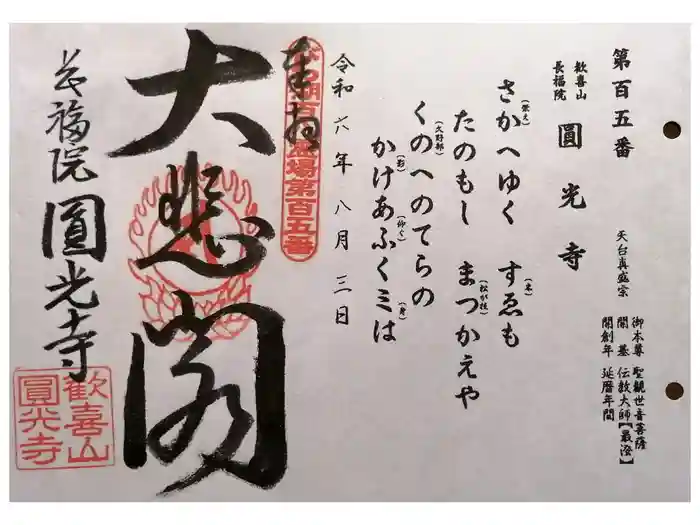 第百五番
天台真盛宗
歓喜山
長福院
圓光寺
御本尊 聖観世音菩薩
開基 伝教大師【最澄】
開創年 延暦年間
さかへゆく(栄え) すゑも(末)
たのもし まつかえや(松が枝)
くのへのてらの(久野部)
かけあふくミは(影)(仰ぐ)(身)
令和六年八月三日
奉拝
びわ湖百八霊場第百五番
大悲閣
長福院
圓光寺
歓喜山
圓光寺